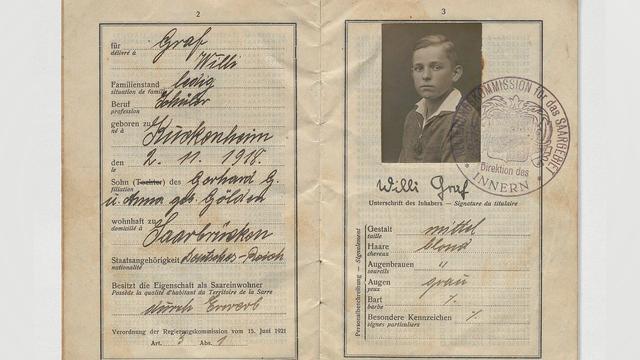 2
für Graf
délivré à Willi
Familienstand ledig
situation de famille
Beruf Schüler
profession
geboren zu Kuckenheim
né à
den 2. 11. 1918.
le
Sohn (Tochter) des Gerhard G.
filiation
u. Anna geb. Gölden
wohnhaft zu Saarbrücken
domicilié à
Staatsangehörigkeit Deutsches-Reich
nationalité
Besitzt die Eigenschaft als Saareinwohner
Possède la qualité d'habitant du Territoire de la Sarre
durch Erwerb
Verordnung der Regierungskommission vom 15. Juni 1921
Art. 3 Abs. 1
3
KOMMISSION für das SAARGEBIET
Direktion des
INNERN
Willi Graf
Unterschrift des Inhabers — Signature du titulaire
Personalbeschreibung — Signalement
Gestalt mittel
taille
Haare blond
cheveux
Augenbrauen "
sourcils
Augen grau
yeux
Bart ٪
barbe
Besondere Kennzeichen ٪
signes particuliers